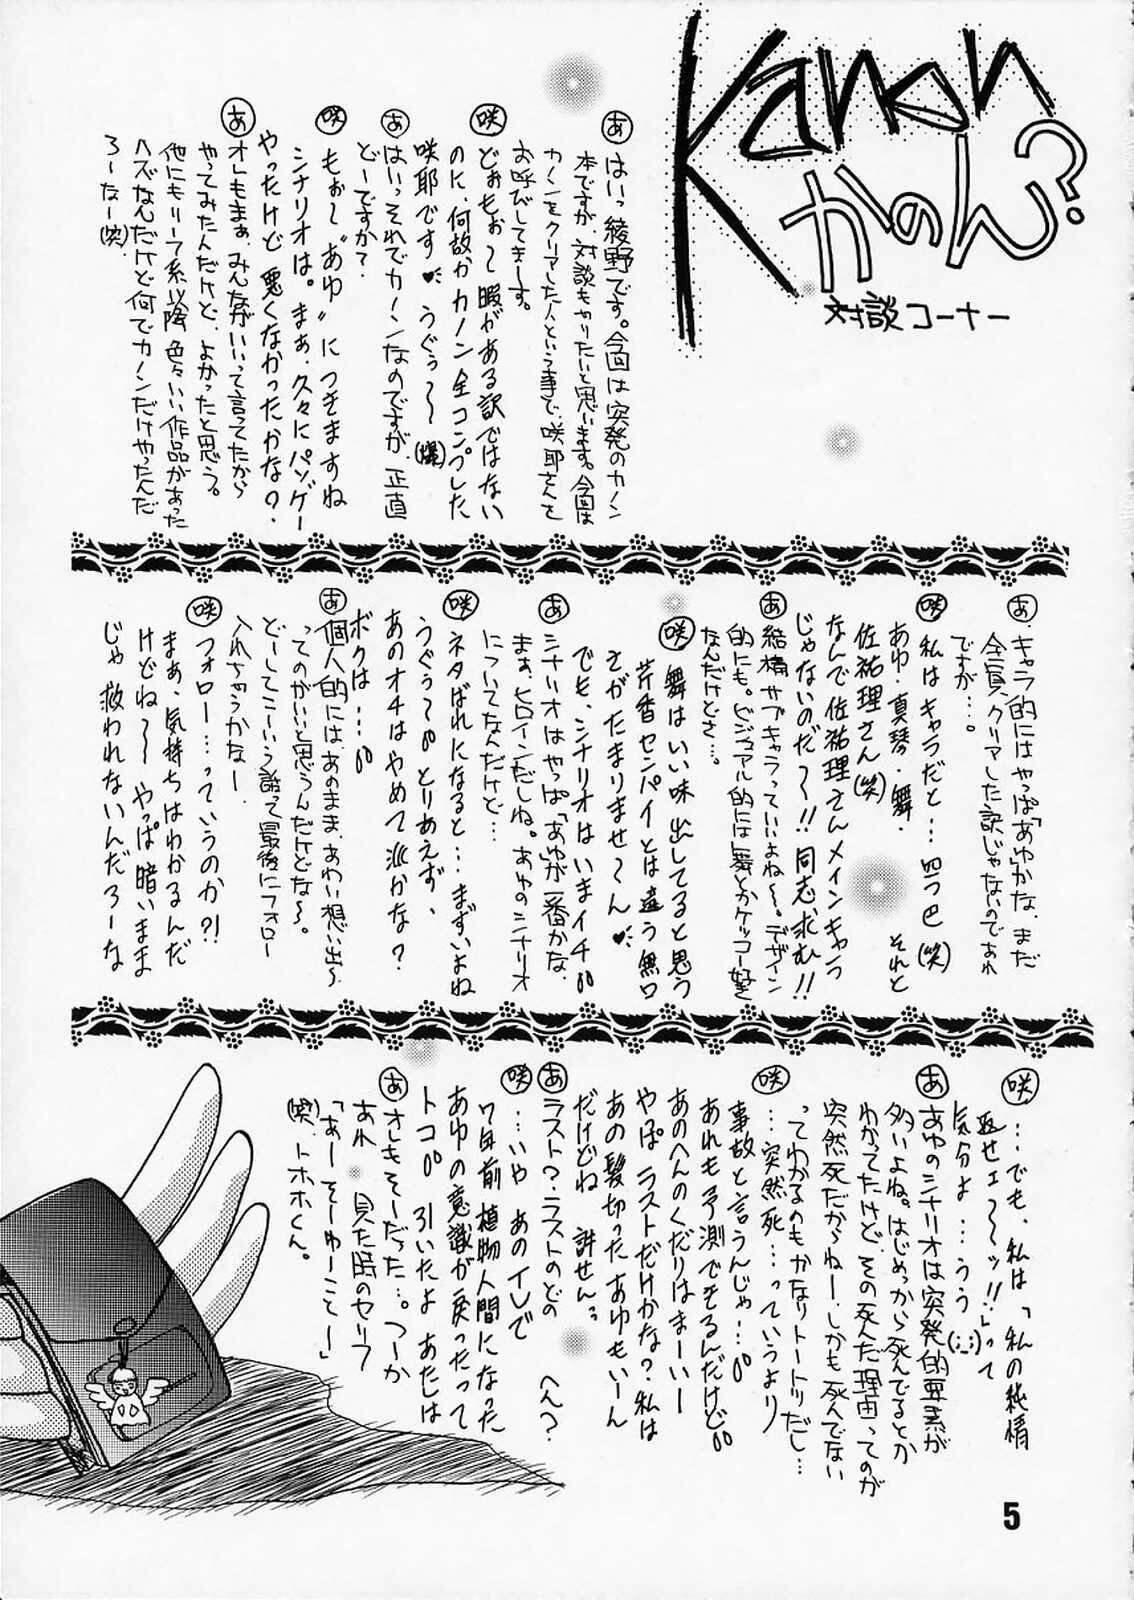 Kanon
かのん?
対談コーナー
あ はいっ綾野です。今回は突発のカノン
本ですが、対談もやりたいと思います。今回は
カノンをクリアした人という事で、咲耶さんを
お呼びしてきまーす。
咲 どぉもぉ〜暇がある訳ではない
のに、何故かカノン全コンプした
咲耶です♥うぐぅ〜〜(爆)
あ はいっそれでカノンなのですが、正直
どーですか?
咲 もぉ〜“あゆ”につきますね
シナリオは。まぁ、久々にパソゲー
やったけど悪くなかったかな?
あ オレもまぁ、みんながいいって言ってたから
やってみたんだけど、よかったと思う。
他にもリーフ系以降色々いい作品があった
ハズなんだけど何でカノンだけやったんだ
ろーなー(笑)
あ キャラ的にはやっぱ「あゆ」かな、まだ
全員クリアした訳じゃないのであれ
ですが…。
咲 私はキャラだと…四つ巴(笑)
あゆ・真琴・舞・それと
佐祐理さん(笑)
なんで佐祐理さんメインキャラ
じゃないのだ〜!!同志求む!!
あ 結構サブキャラっていいよね〜。デザイン
的にも。ビジュアル的には舞とかケッコー好き
なんだけどさ…。
咲 舞はいい味出してると思う
芹香センパイとは違う無口
さがたまりませ〜ん♥
でも、シナリオはいまイチ
あ シナリオはやっぱ「あゆ」が一番かな、
まぁ、ヒロインだしね。あゆのシナリオ
についてなんだけど…
咲 ネタばれになると…まずいよね
うぐぅ〜とりあえず、
あのオチはやめて欲しいかな?
ボクは……
あ 個人的には、あのまま、あわい想い出〜
ってのがいいと思うんだけどな〜。
どーしてこーいう話って最後にフォロー
入れちゃうかなー
咲 フォロー…っていうのか?!
まぁ、気持ちはわかるんだ
けどね〜〜やっぱ暗いまま
じゃ救われないんだろーな
咲 …でも、私は「私の純情
返せェ〜〜ッ!!」って
気分よ…うぅ(;_;)
あ あゆのシナリオは突発的要素が
多いよね。はじめっから死んでるとか
わかってたけど、その死んだ理由ってのが
突然死だからねー、しかも死んでない
ってわかるのもかなりトートツだし…
咲 …突然死…っていうより
事故と言うんじゃ…
あれも予測できるんだけど
あのへんのくだりはまーいー
やぱラストだけかな?私は
あの髪切ったあゆもいーん
だけどね 許せんっ
あ ラスト?ラストのどの
へん?
咲 …いや あのイレで
7年前植物人間になった
あゆの意識が戻ったって
トコ 引いたよあたしは
あ オレもそーだった…。つーか
あれ 見た時のセリフ
「あーそーゆーことー」
(笑)、トホホくん。
5